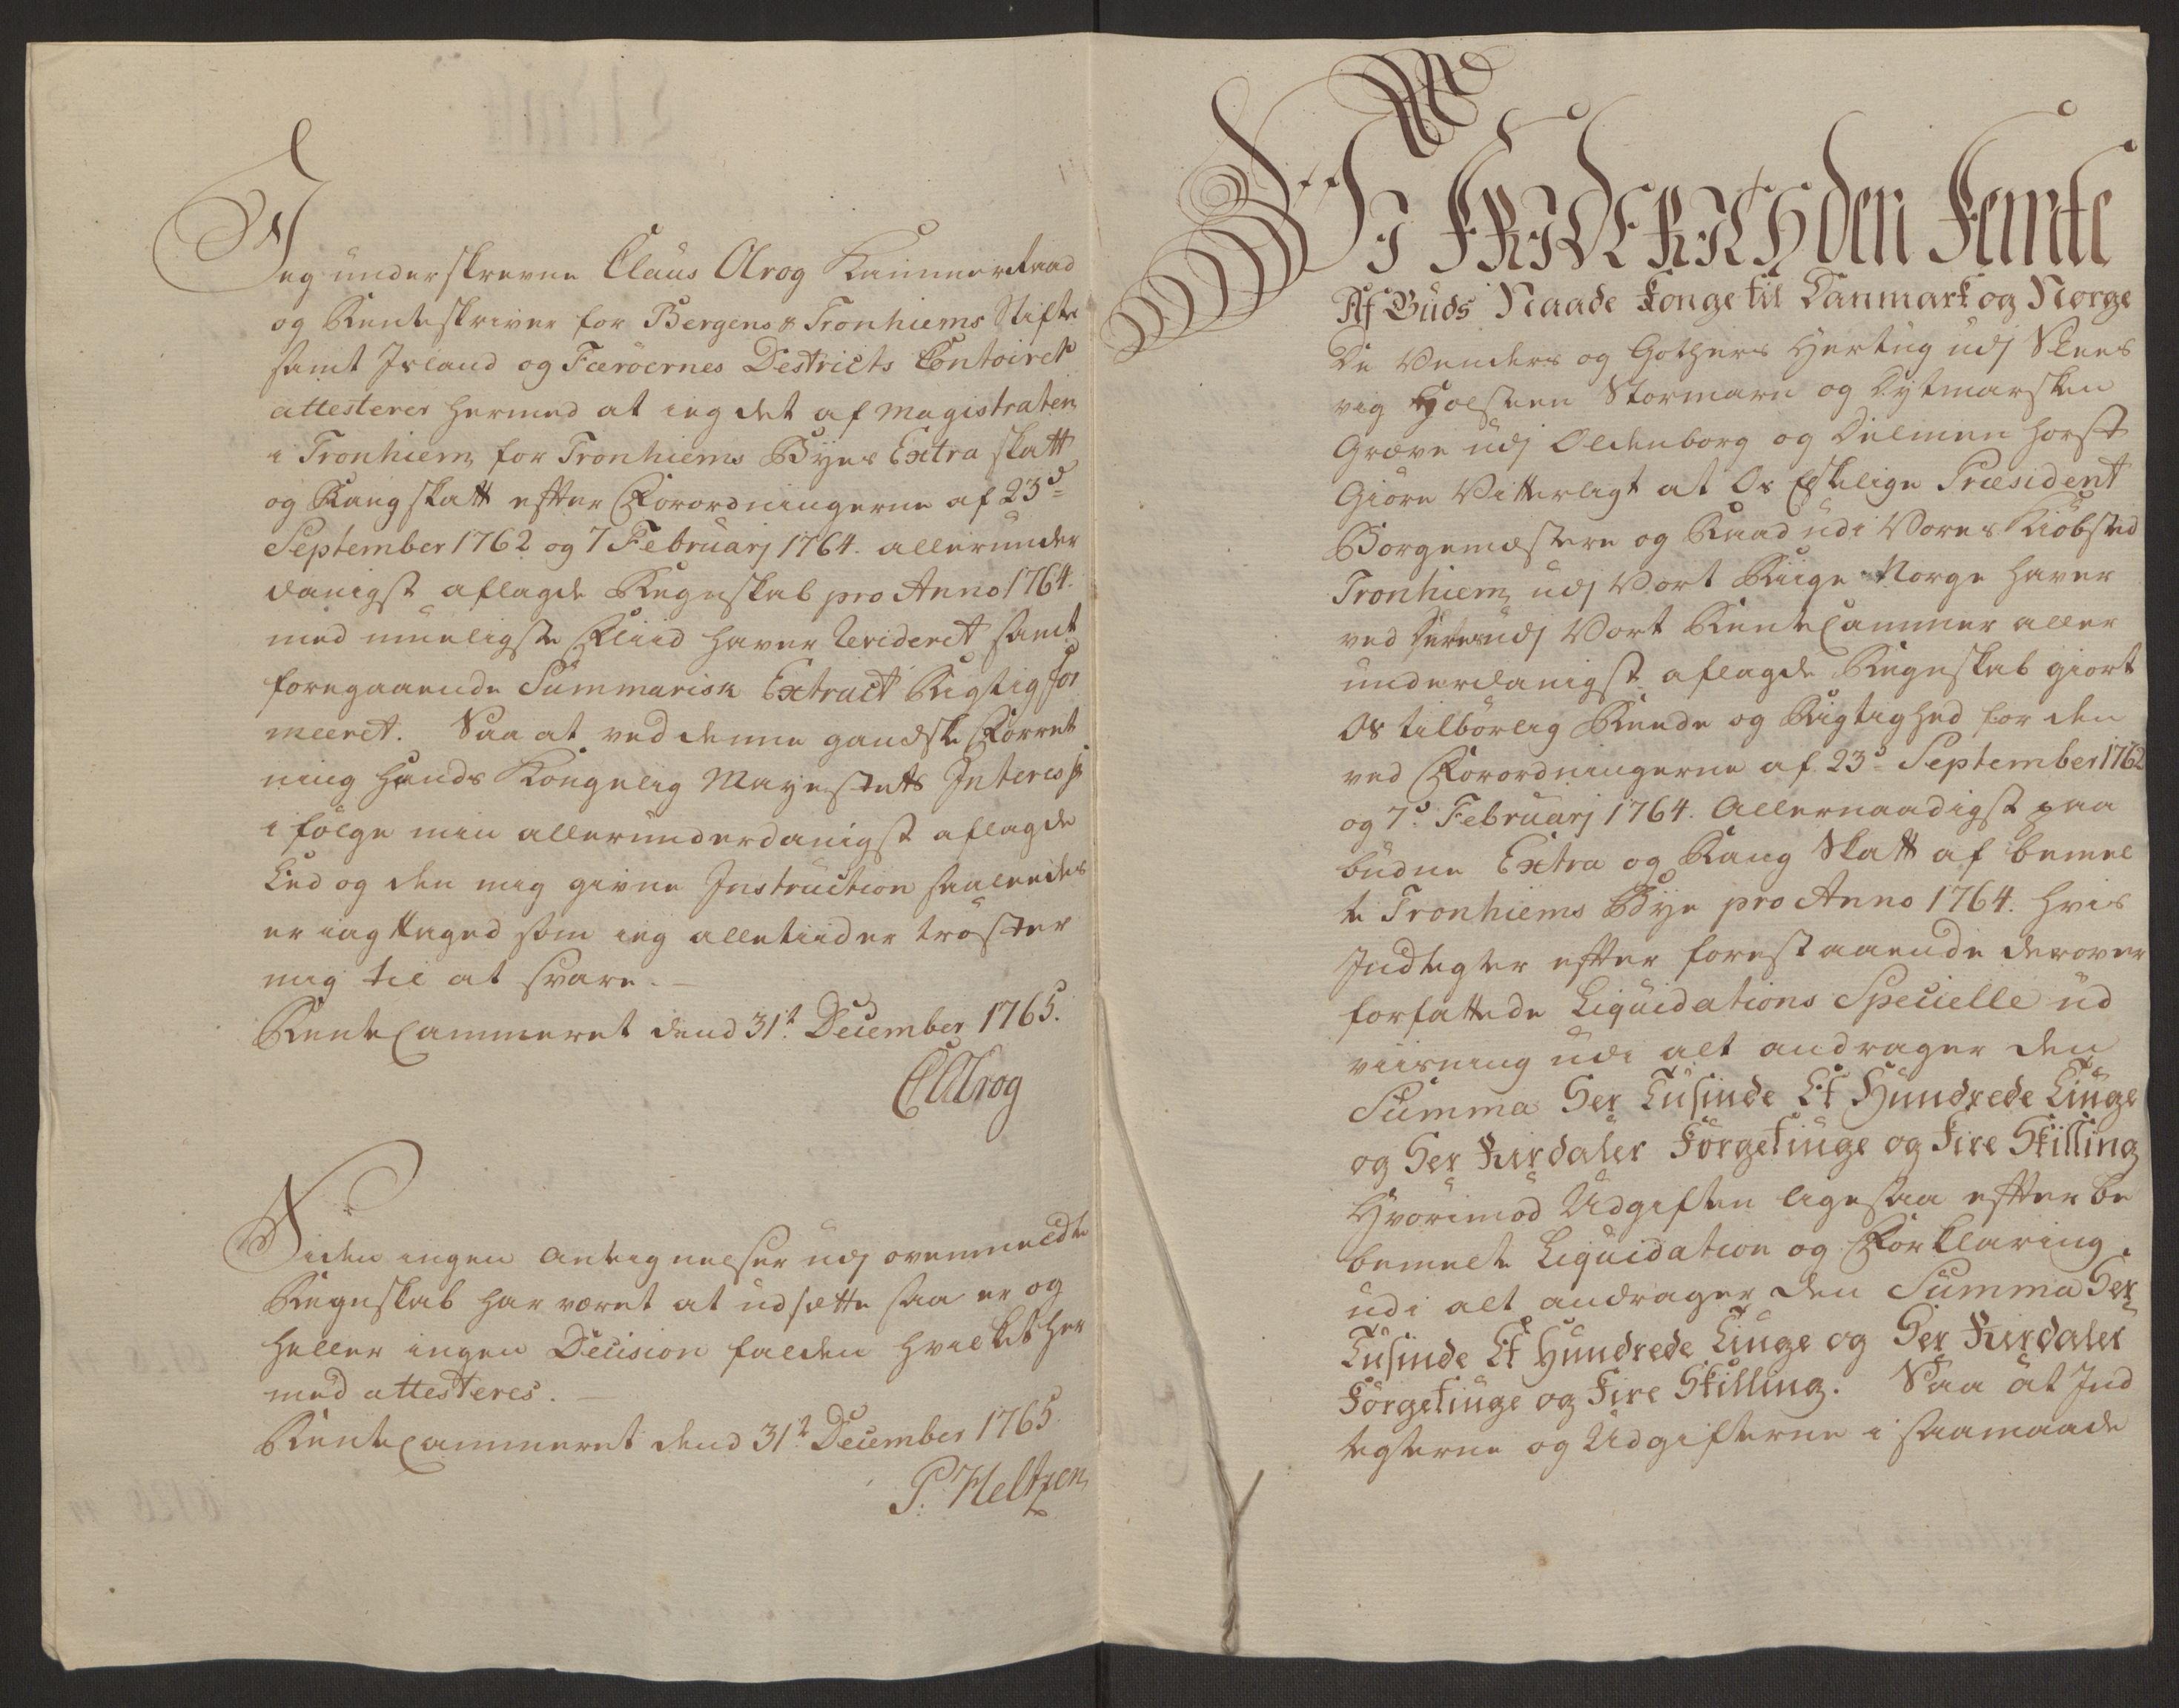 Jeg underskrevne Claus Olrog Kammerraad
og Renteskriver for Bergens & Tronhiems Stifte
samt Island og Færöernes Destricts Contoirer
attesterer hermed at ieg det af Magistraten
i Tronhiem for Tronhiems Byes Extra skatt
og Rang skatt efter Forordningerne af 23d
September 1762 og 7 Februarj 1764. allerunder
danigst aflagde Regnskab pro Anno 1764.
med mueligste Fliid haver Revideret samt
foregaaende Summarisk Extract Rigtig for
meeret. Saa at ved denne gandske Forret
ning Hands Kongelig Mayestets Interesse
i følge min allerunderdanigst aflagde
Eed og den mig givne Instruction saaledes
er iagttaged som ieg alletiider trøster
mig til at svare.
RenteCammeret dend 31t December 1765.
COlrog
Siden ingen Antegnelser udj ovenmeldte
Regnskab har været at udsætte saa er og
heller ingen Decision falden hvilket her
med attesteres.
RenteCammeret dend 31t December 1765
P. Heltzen
Wi FRIDERICH den Femte
Af Guds Naade Konge til Danmark og Norge
De Venders og Gothers Hertug udj Slees
vig Holsteen Stormarn og Dytmarsken
Greve udj Oldenborg og Delmenhorst
Giöre Vitterligt at Os Elskelige Præsident
Borgemestere og Raad udi Vores Kiöbsted
Tronhiem udj Vort Riige Norge haver
ved Deres udj Vort RenteCammer aller
underdanigst aflagde Regnskab giort
Os tilbörlig Reede og Rigtighed for den
ved Forordningerne af 23d September 1762
og 7d Februarj 1764. Allernaadigst paa
budne Extra og Rang Skatt af bemel
te Tronhiems Bye pro Anno 1764. hvis
Indtegter efter forestaaende derover
forfattede Liquidations Specielle ud
viisning udi alt andrager den
Summa Sex Tusinde Et Hundrede Tiuge
og Sex Rixdaler Förgetiuge og Fire Skilling
Hvorimod Udgiften ligesaa efter be
bemelte Liquidation og Forklaring
udi alt andrager den Summa Sex
Tusinde Et Hundrede Tiuge og Sex Rixdaler
Förgetiuge og Fire Skilling. Saa at Ind
tegterne og Udgifterne i saamaade